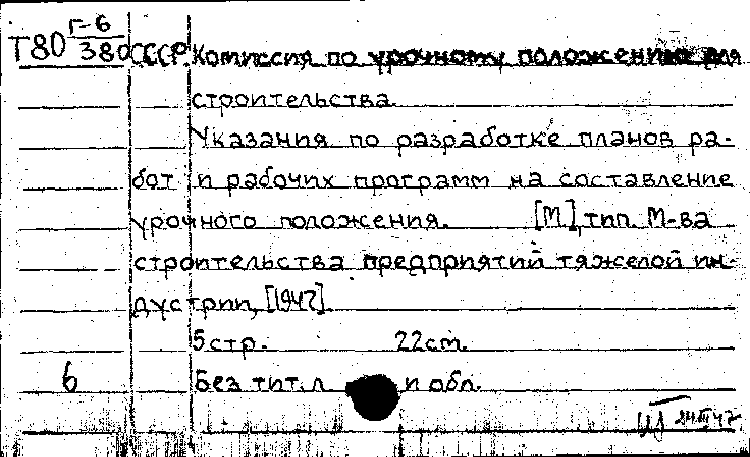 Т80 Г-6/380 СССР. Комиссия по урочному положению для
строительства.
Указания по разработке планов ра-
бот и рабочих программ на составление
урочного положения. [М], тип. М-ва
строительства предприятий тяжелой ин-
дустрии, [1947].
5 стр. 22 см.
6 Без тит. л. и обл.